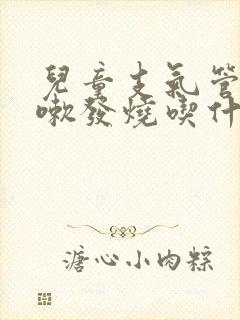 兒童支氣管
嗽發燒喫什
溏心小肉粽